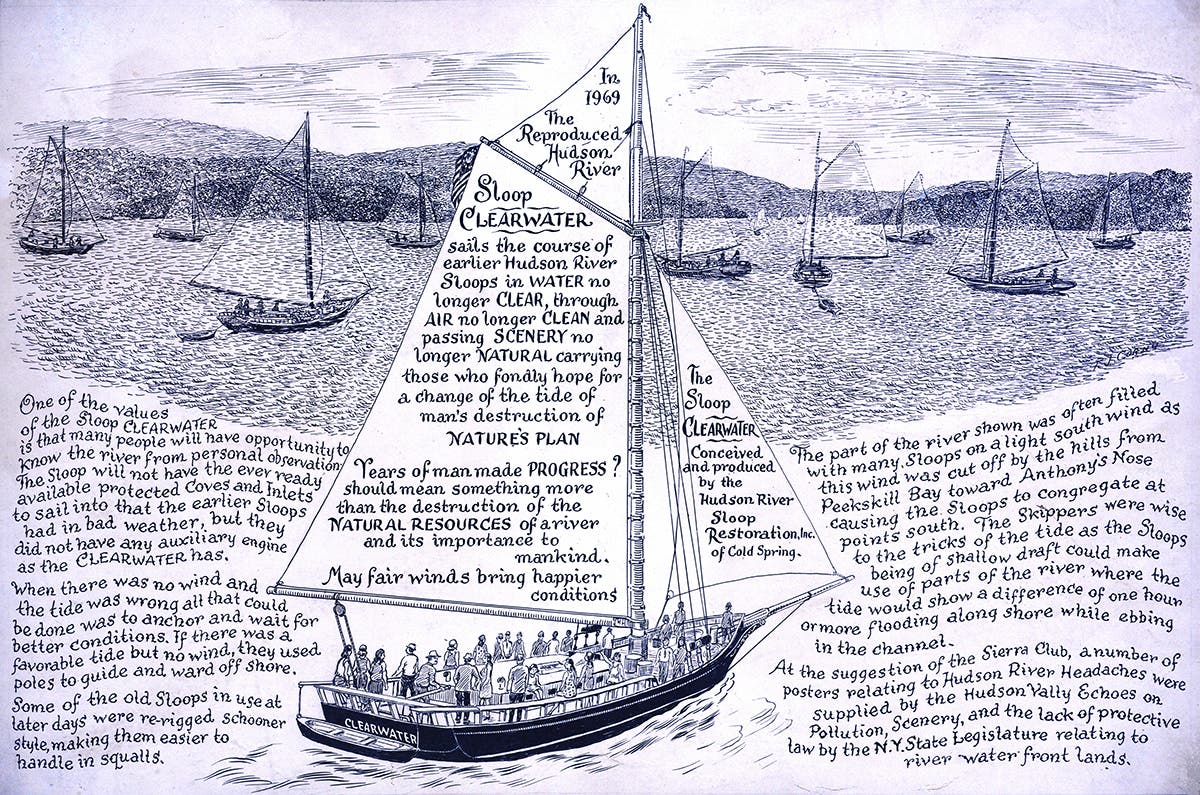 In
1969
The
Reproduced
Hudson
River
Sloop
CLEARWATER
sails the course of
earlier Hudson River
Sloops in WATER no
longer CLEAR, through
AIR no longer CLEAN and
passing SCENERY no
longer NATURAL carrying
those who fondly hope for
a change of the tide of
man's destruction of
NATURE'S PLAN
Years of man made PROGRESS ?
should mean something more
than the destruction of the
NATURAL RESOURCES of a river
and its importance to
mankind.
May fair winds bring happier
conditions
The
Sloop
CLEARWATER
Conceived
and produced
by the
Hudson River
Sloop
Restoration, Inc.
of Cold Spring.
One of the values
of the Sloop CLEARWATER
is that many people will have opportunity to
know the river from personal observation
The Sloop will not have the ever ready
available protected Coves and Inlets
to sail into that the earlier Sloops
had in bad weather, but they
did not have any auxiliary engine
as the CLEARWATER has.
When there was no wind and
the tide was wrong all that could
be done was to anchor and wait for
better conditions. If there was a
favorable tide but no wind, they used
poles to guide and ward off shore.
Some of the old Sloops in use at
later days were re-rigged schooner
style, making them easier to
handle in squalls.
The part of the river shown was often filled
with many Sloops on a light south wind as
this wind was cut off by the hills from
Peekskill Bay toward Anthony's Nose
causing the Sloops to congregate at
points south. The Skippers were wise
to the tricks of the tide as the Sloops
being of shallow draft could make
use of parts of the river where the
tide would show a difference of one hour
or more flooding along shore while ebbing
in the channel.
At the suggestion of the Sierra Club, a number of
posters relating to Hudson River Headaches were
supplied by the Hudson Vally Echoes on
Pollution, Scenery, and the lack of protective
law by the N.Y. State Legislature relating to
river water front lands.
CLEARWATER